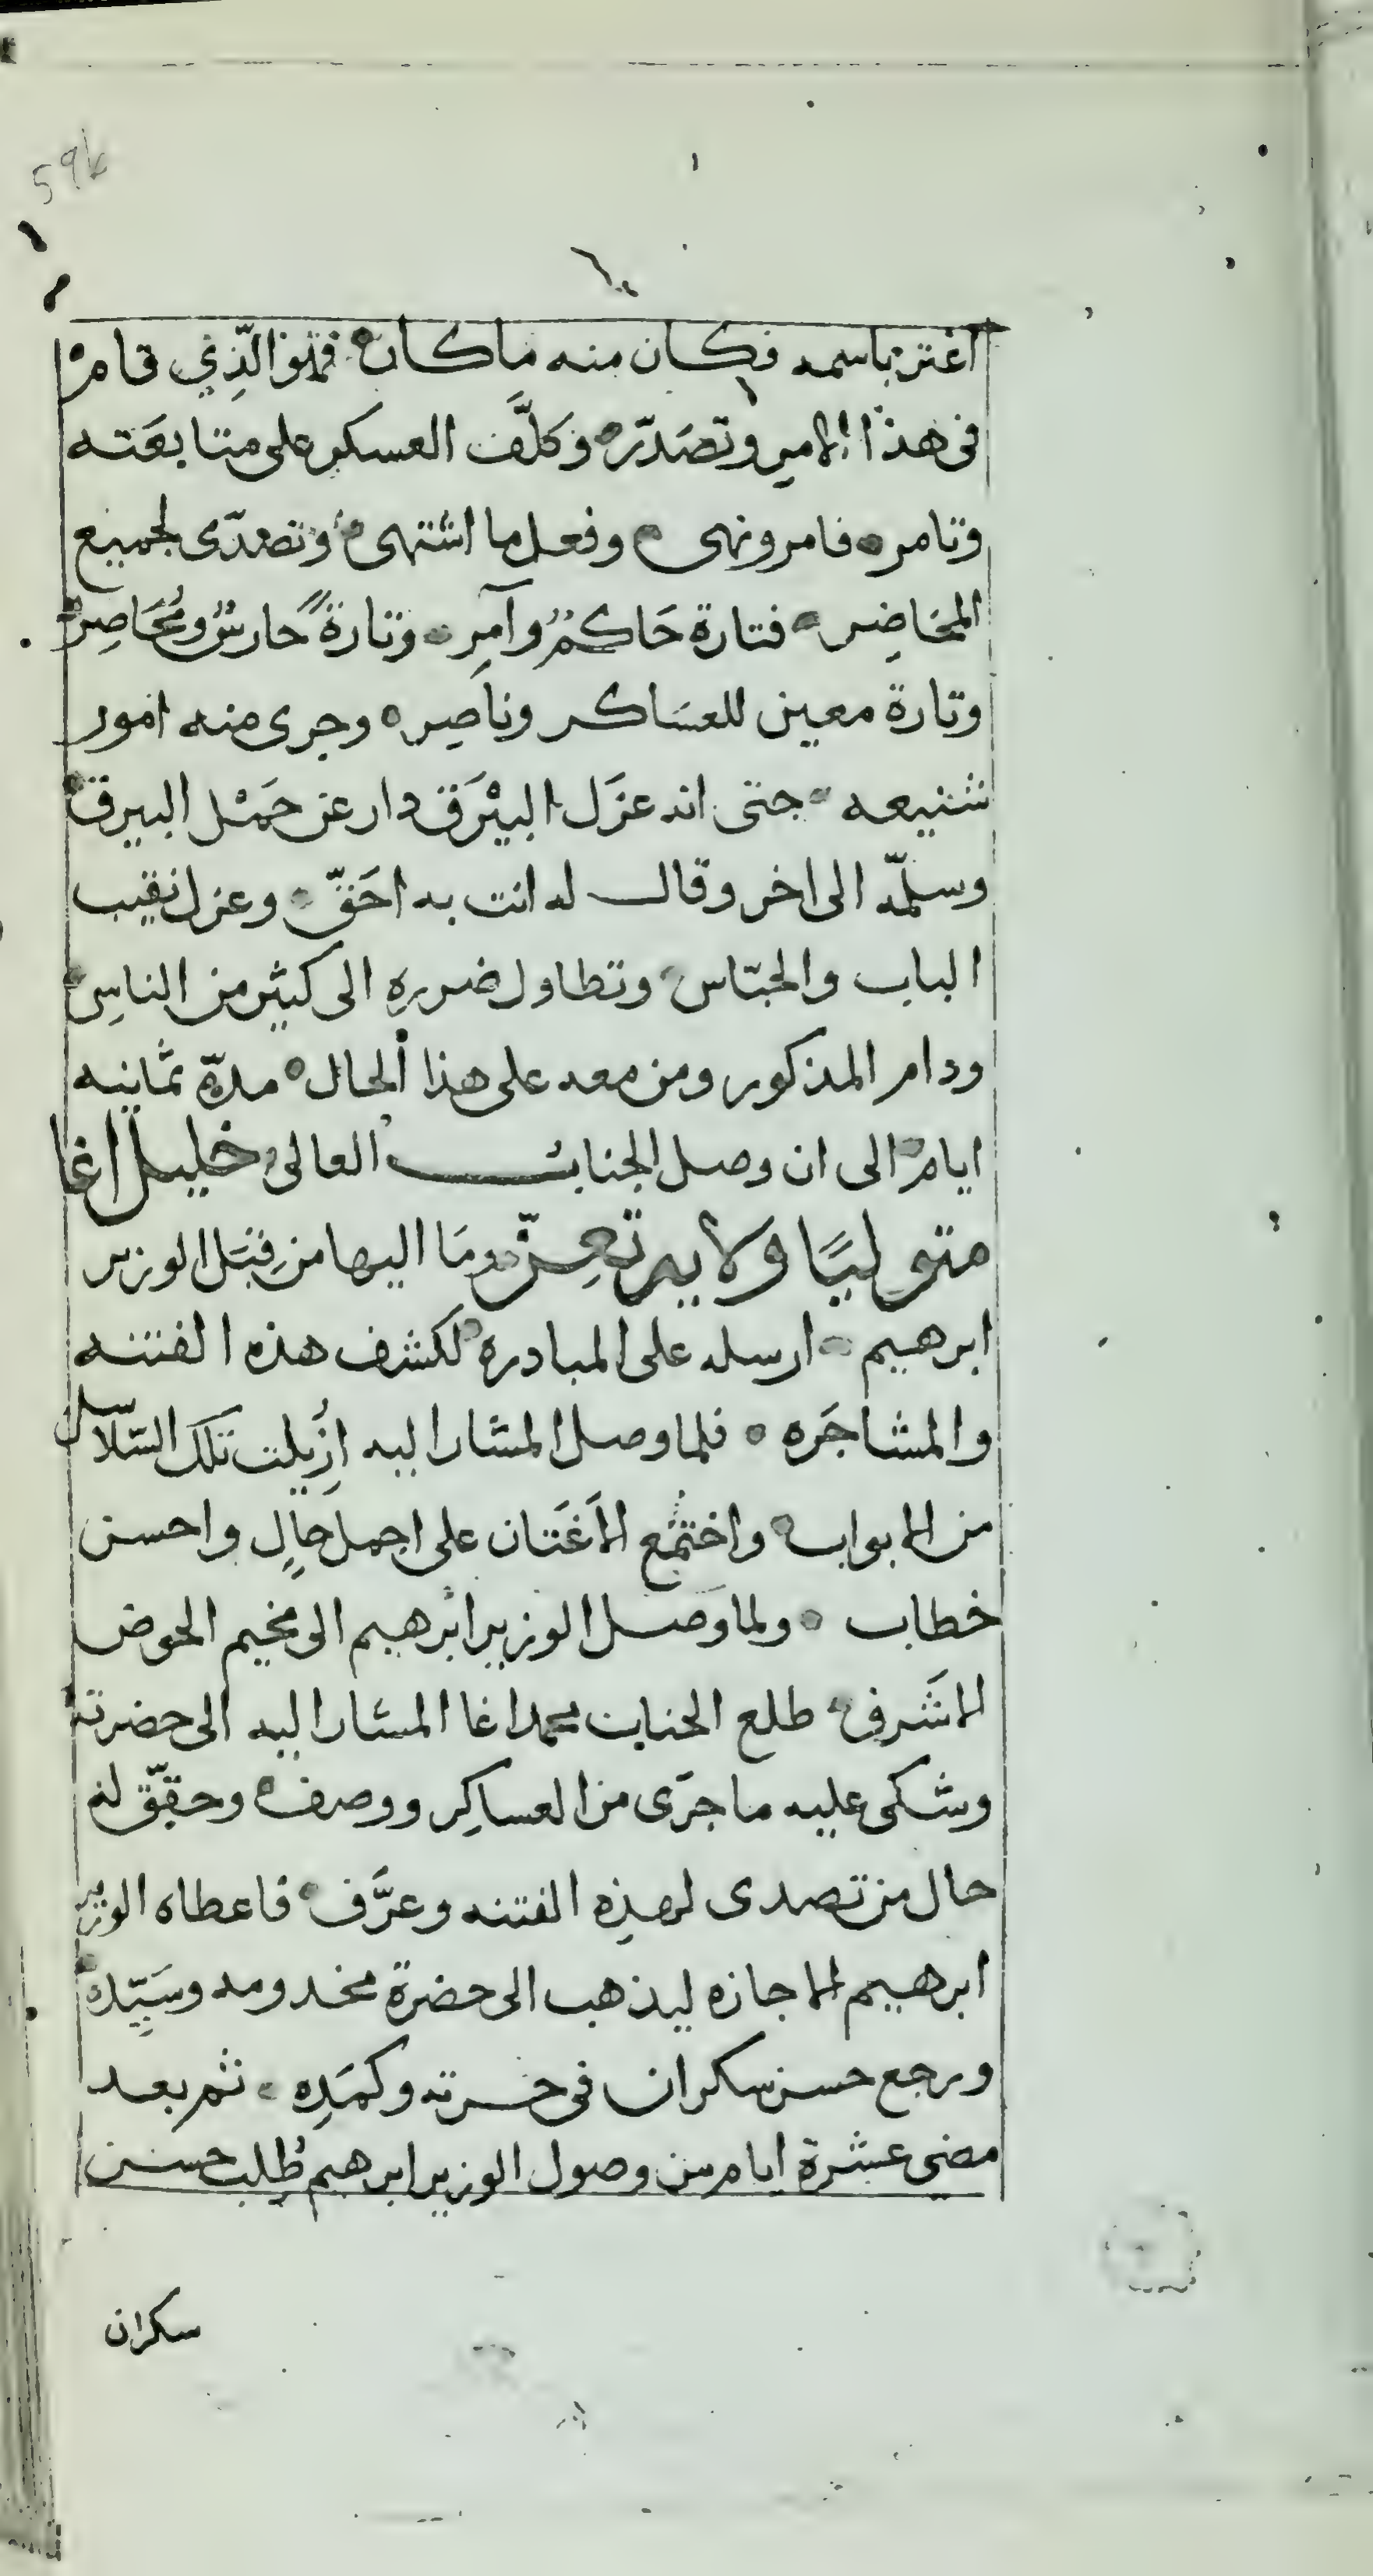 59b
اغتر باسمه فكان منه ماكان فهو الّذي قام
فى هذا الامر وتصَدّر وكلَّف العسكر على متابعَته
وتامر فامر ونهى وفعل ما اشتهى وتصدّى لجميع
المحَاضِر فتارة حَاكمٌ وآمِر وتارةً حارسٌ ومُحَاصِر
وتارة معين للعسَاكر وناصِر وجرى منه امور
شنيعه حتى انه عزَل البيْرَق دار عن حَمْل البيرق
وسلّمه الى اخر وقال له انت به احَقّ وعزل نقيب
الباب والحبّاس وتطاول ضرره الى كثير من الناسِ
ودام المذكور ومن معه على هذا الحال مدّة ثمانيه
ايام الى ان وصل الجناب العالى خليل اغا
متوليًا ولاية تعِزّ ومَا اليها من قِبَل الوزير
ابرهيم ارسله على المبادره لكشف هذه الفتنه
والمشاجَره فلما وصل المشار اليه ازُيلت تلك السّلاسل
من الابواب واجتمع الاَغَتان على اجمل حالٍ واحسن
خطاب ولما وَصَل الوزير ابرهيم الى مخيم الحوض
الاشَرفى طلع الجناب محمد اغا المشار اليه الى حضرته
وشكى عليه ما جرَى من العساكِر ووصف وحقّق له
حال من تصدى لهذِه الفتنه وعرَّف فاعطاه الوزير
ابرهيم الاجازه ليذهب الى حضرة مخدومه وسَيّدِه
ورجع حسن سكران فى حسرته وكمَدِه ثم بعد
مضى عشرة ايام من وصول الوزير ابرهيم طُلب حسن
سكران